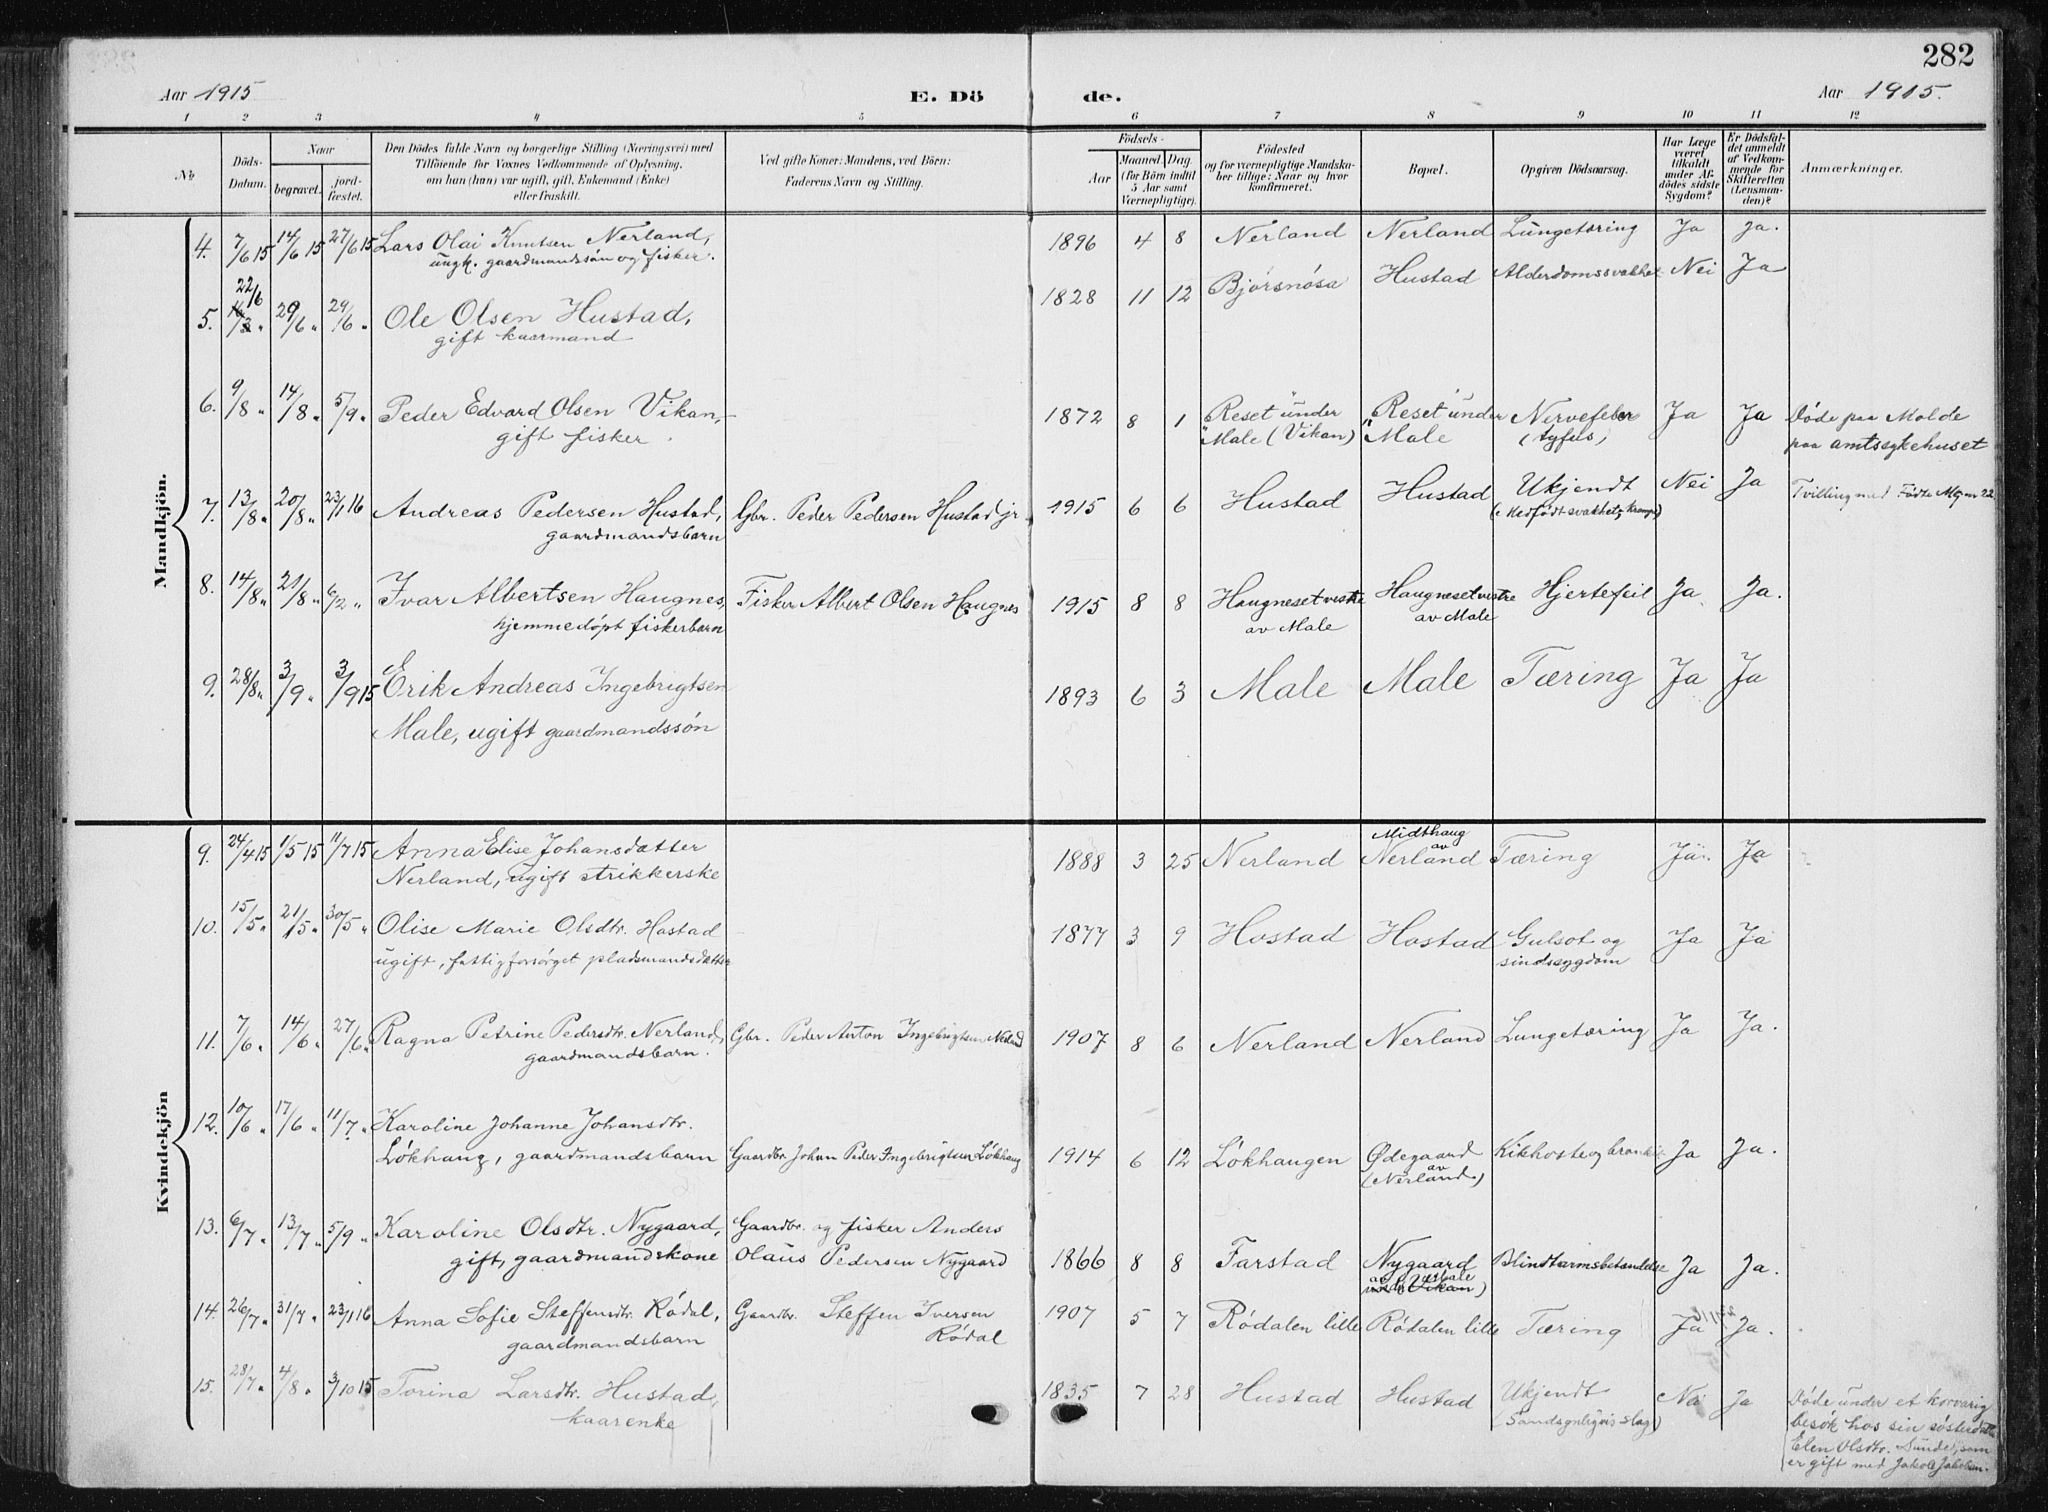 282
Aar 1915
E. Dö de.
Aar 1915.
1 2 3 4 5 6 7 8 9 10 11 12
No
Döds-Datum.
Naar
begravet.
jord-fæstet.
Den Dödes fulde Navn og borgerlige Stilling (Næringsvei) med
Tilföiende for Voxnes Vedkommende af Oplysning,
om han (hun) var ugift, gift, Enkemand (Enke)
eller fraskilt.
Ved gifte Koner: Mandens, ved Börn:
Faderens Navn og Stilling.
Födsels-
Aar
Maaned. Dag.
(for Börn indtil
5 Aar samt
Værnepligtige).
Födested
og for værnepligtige Mandska-
ber tillige: Naar og hvor
konfirmeret.
Bopæl.
Opgiven Dödsaarsag.
Har Læge
været
tilkaldt
under Af-
dödes sidste
Sygdom?
Er Dödsfal-
det anmeldt
af Vedkom-
mende for
Skifteretten
(Lensman-
den)?
Anmærkninger.
Mandkjön.
4. 7/6 15 14/6 15 27/6 15 Lars Olai Knutsen Nerland, 1896 4 8 Nerland Nerland Lungetæring Ja Ja.
ungk. gaardmandssón og fisker.
5. 22/6 " 29/6 " 29/6 " Ole Olsen Hustad, 1828 11 12 Bjórsnósa Hustad Alderdomssvakhet Nei Ja
gift kaarmand
6. 9/8 " 14/8 " 5/9 " Peder Edvard Olsen Vikan, 1872 8 1 Reset under Reset under Nervefeber Ja Ja Dóde paa Molde
gift fisker. Male (Vikan) Male (tyfus) paa amtssykehuset
7. 13/8 " 20/8 " 23/1 16 Andreas Pedersen Hustad, Gbr. Peder Pedersen Hustad jr 1915 6 6 Hustad Hustad Ukjendt Nei Ja Tvilling med Fódte Mg nr 22
gaardmandsbarn (Medfódt svakhet, krampe)
8. 14/8 " 21/8 " 6/2 " Ivar Albertsen Haugnes, Fisker Albert Olsen Haugnes 1915 8 8 Haugneset vestre Haugneset vestre Hjertefeil Ja Ja.
hjemmedópt fiskerbarn av Male av Male
9. 28/8 " 3/9 " 3/9 15 Erik Andreas Ingebrigtsen 1893 6 3 Male Male Tæring Ja Ja
Male, ugift gaardmandssón
Kvindekjön
9. 24/4 15 1/5 15 11/7 15 Anna Elise Johansdatter 1888 3 25 Nerland Midthaug av Nerland Tæring Ja Ja
Nerland, ugift strikkerske
10. 15/5 " 21/5 " 30/5 " Olise Marie Olsdtr. Hostad 1877 3 9 Hostad Hostad Gulsot og Ja Ja
ugift, fattigforsórget pladsmandsdatter sindssygdom
11. 7/6 " 14/6 " 27/6 " Ragna Petrine Pedersdtr. Nerland, Gbr. Peder Anton Ingebrigtsen Nerland 1907 8 6 Nerland Nerland Lungetæring Ja Ja.
gaardmandsbarn.
12. 10/6 " 17/6 " 11/7 " Karoline Johanne Johansdtr.
Lókhaug, gaardmandsbarn Gaardbr. Johan Peder Ingebrigtsen Lókhaug 1914 6 12 Lókhaugen Ødegaard Kikhoste og bronkit Ja Ja.
av (Nerland)
13. 6/7 " 13/7 " 5/9 " Karoline Olsdtr. Nygaard, Gaardbr. og fisker Anders
gift, gaardmandskone Olaus Pedersen Nygaard 1866 8 8 Farstad Nygaard Blindtarmsbetændelse Ja Ja.
Vikan)
14. 26/7 " 31/7 " 23/1 16 Anna Sofie Steffensdtr. Ródal, Gaardbr. Steffen Iversen 1907 5 7 Ródalen lille Ródalen lille Tæring Ja Ja.
gaardmandsbarn Ródal
15. 28/7 " 4/8 " 3/10 15 Torina Larsdtr. Hustad, 1835 7 28 Hustad Hustad Ukjendt Nei Ja Dóde under et kórvarig
kaarenke (Sandsynligvis slag) besók hos sin sósterdatter
Elen Olsdtr. Sunde, som
er gift med Jakob Jakobsen.